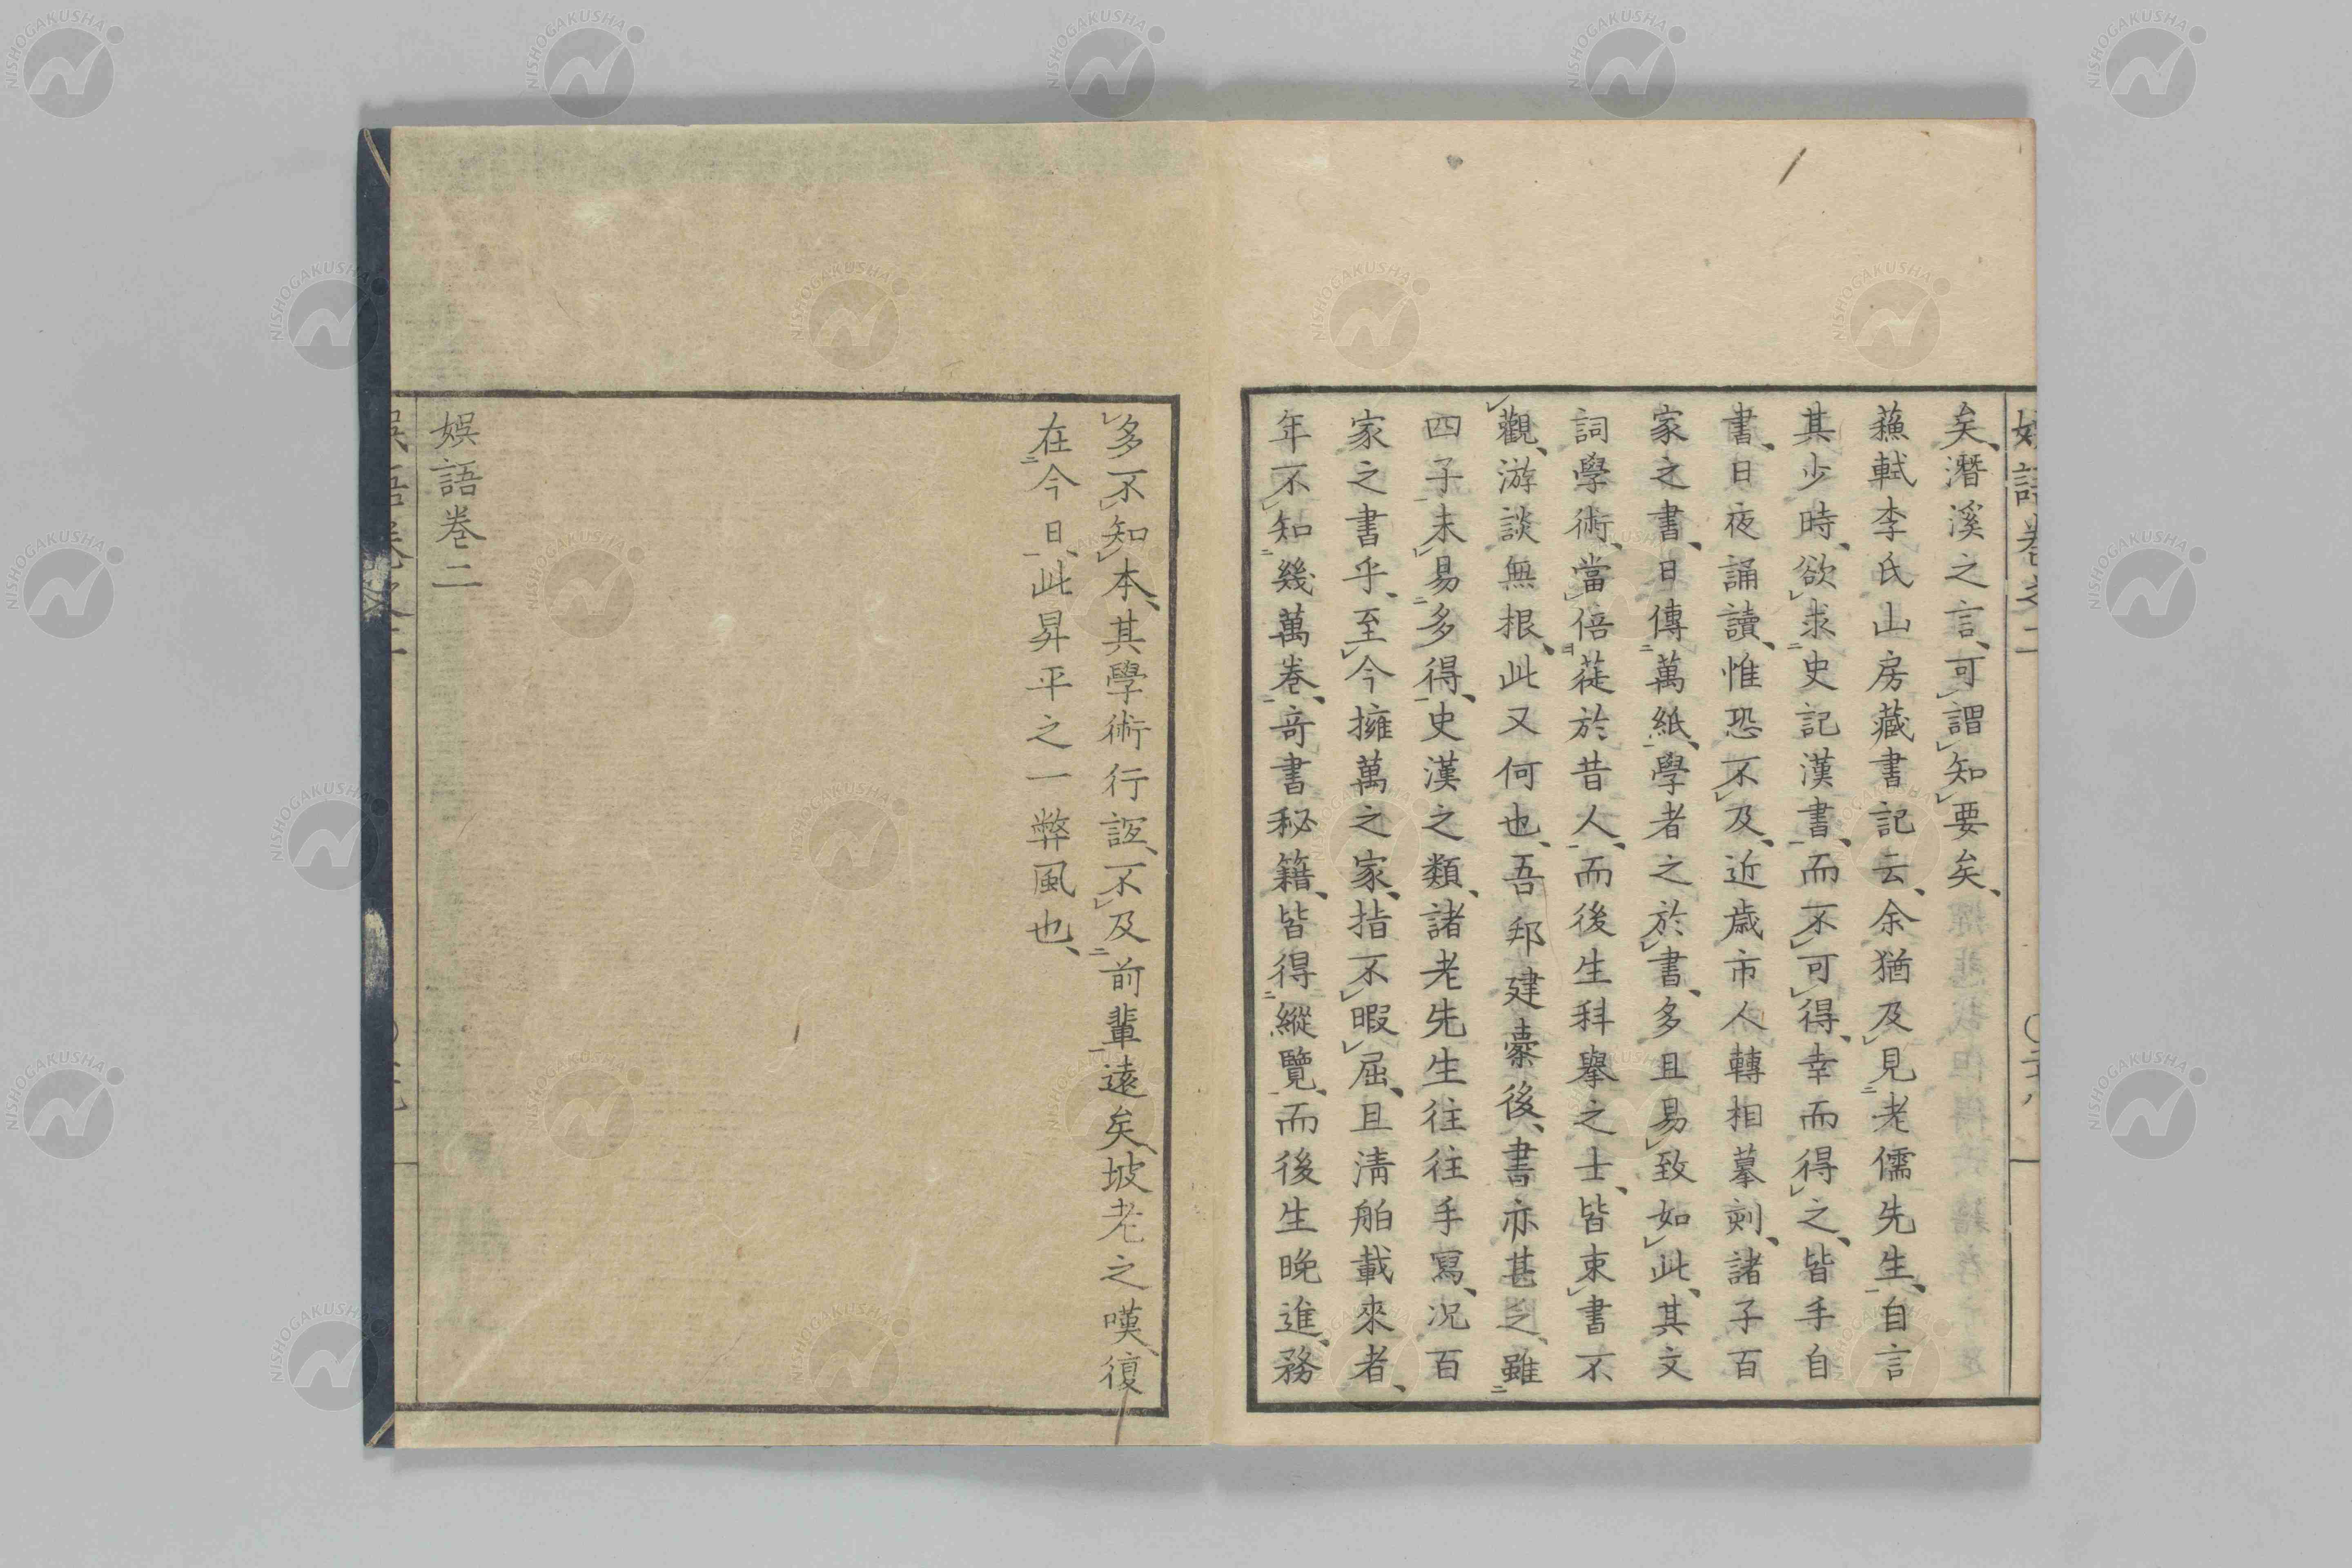 矣、潛溪之言、可謂知要矣、
蘓軾李氏山房藏書記云、余猶及見老儒先生、自言
其少時、欲求史記漢書、而不可得、幸而得之、皆手自
書、日夜誦讀、惟恐不及、近歳市人轉相摹刻、諸子百
家之書、日傳萬紙、學者之於書、多且易致如此、其文
詞學術、當倍蓰於昔人、而後生科擧之士、皆束書不
觀、游談無根、此又何也、吾邦建櫜後、書亦甚乏、雖
四子未易多得、史漢之類、諸老先生往往手寫、况百
家之書乎、至今擁萬之家、指不暇屈、且淸舶載來者、
年不知幾萬巻、奇書秘籍、皆得縱覽、而後生晚進、務
多不知本、其學術行誼、不及前輩遠矣、坡老之嘆、復
在今日、此昇平之一弊風也、
娯語巻二
娯語巻之二
NISHOGAKUSHA